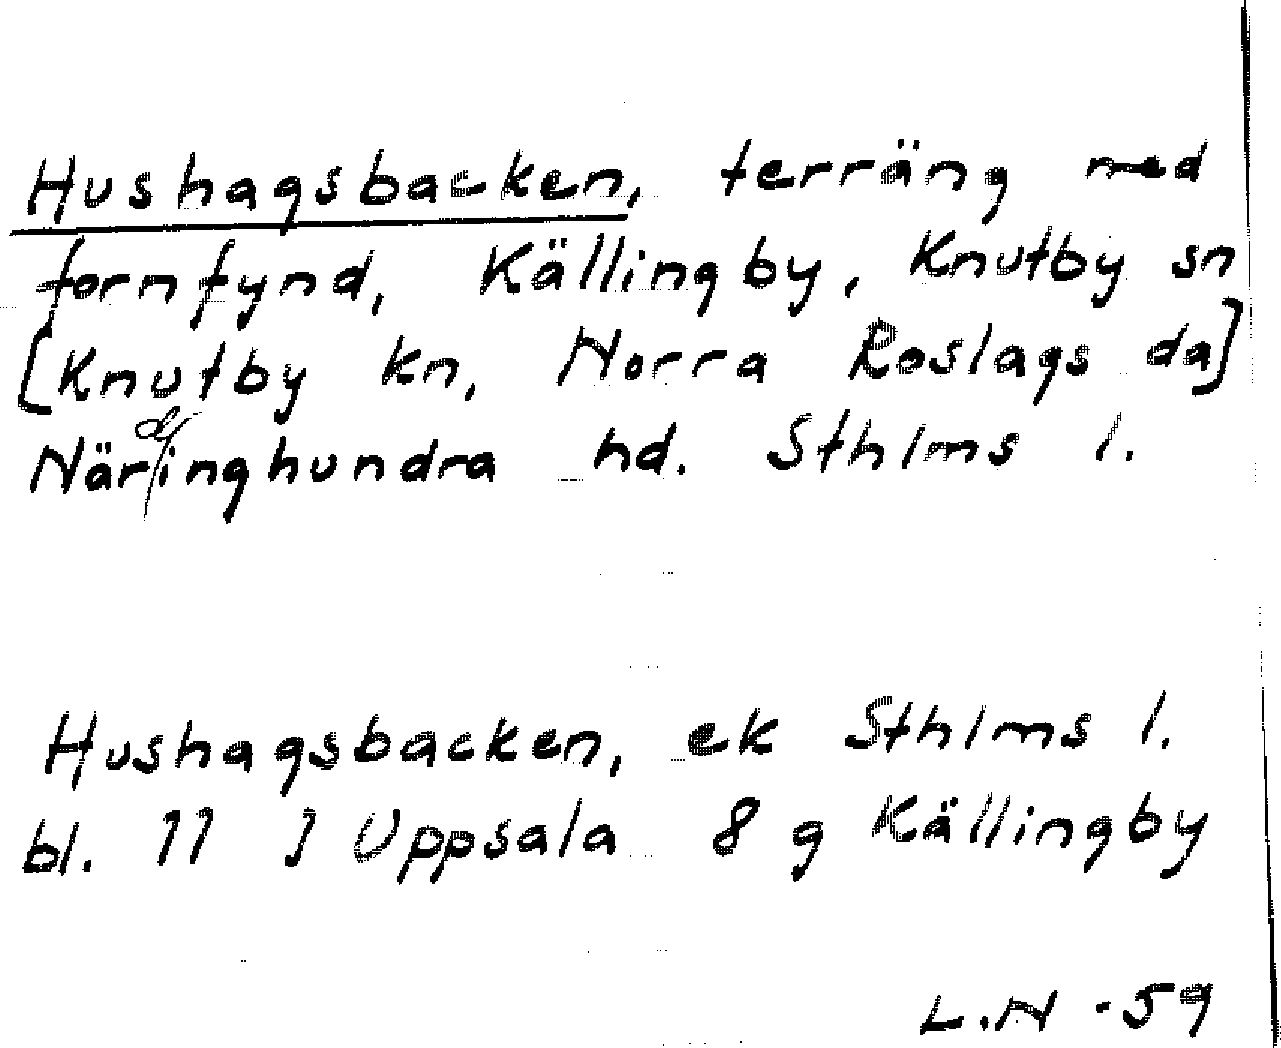 Hushagsbacken, terräng med
fornfynd, Källingby, Knutby sn
[Knutby kn, Norra Roslags da]
Närdinghundra hd. Sthlms l.
Hushagsbacken, ek Sthlms l.
bl. 11 J Uppsala 8 g Källingby
L.N -59